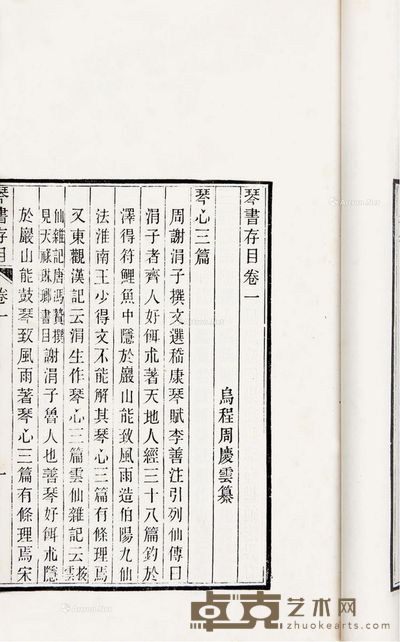 琴書存目卷一
烏程周慶雲纂
琴心三篇
周謝涓子撰文選嵇康琴賦李善注引列仙傳曰
涓子者齊人好餌朮著天地人經三十八篇釣於
澤得符鯉魚中隱於巖山能致風雨造伯陽九仙
法淮南王少得文不能解其琴心三篇有條理焉
又東觀漢記云涓生作琴心三篇雲仙雜記云按雲
仙雜記唐馮贄撰
見天祿琳瑯書目謝涓子魯人也善琴好餌朮隱
於巖山能鼓琴致風雨著琴心三篇有條理焉宋
琴書存目 卷一
一
卓克艺术网
www.zhuokearts.com